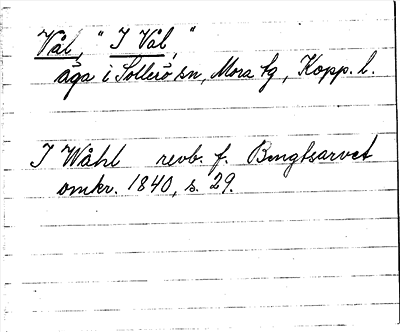 Vål, "I Vål,"
äga i Sollerö sn, Mora tg, Kopp. l.
I Wåhl revb. f. Bengtsarvet
omkr. 1840, s. 29.